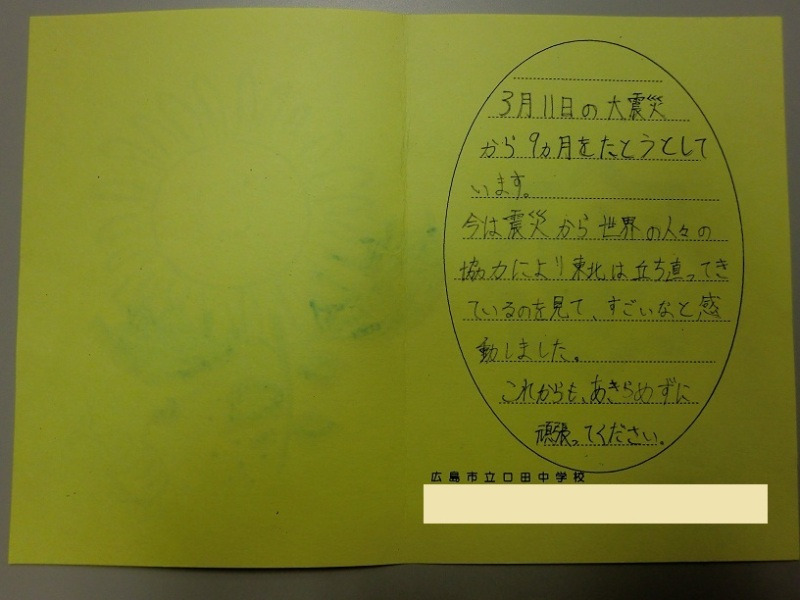 3月11日の大震災
から9ヵ月をたとうとして
います。
今は震災から世界の人々の
協力により東北は立ち直ってき
ているのを見て、すごいなと感
動しました。
これからも、あきらめずに
頑張ってください。
広島市立口田中学校